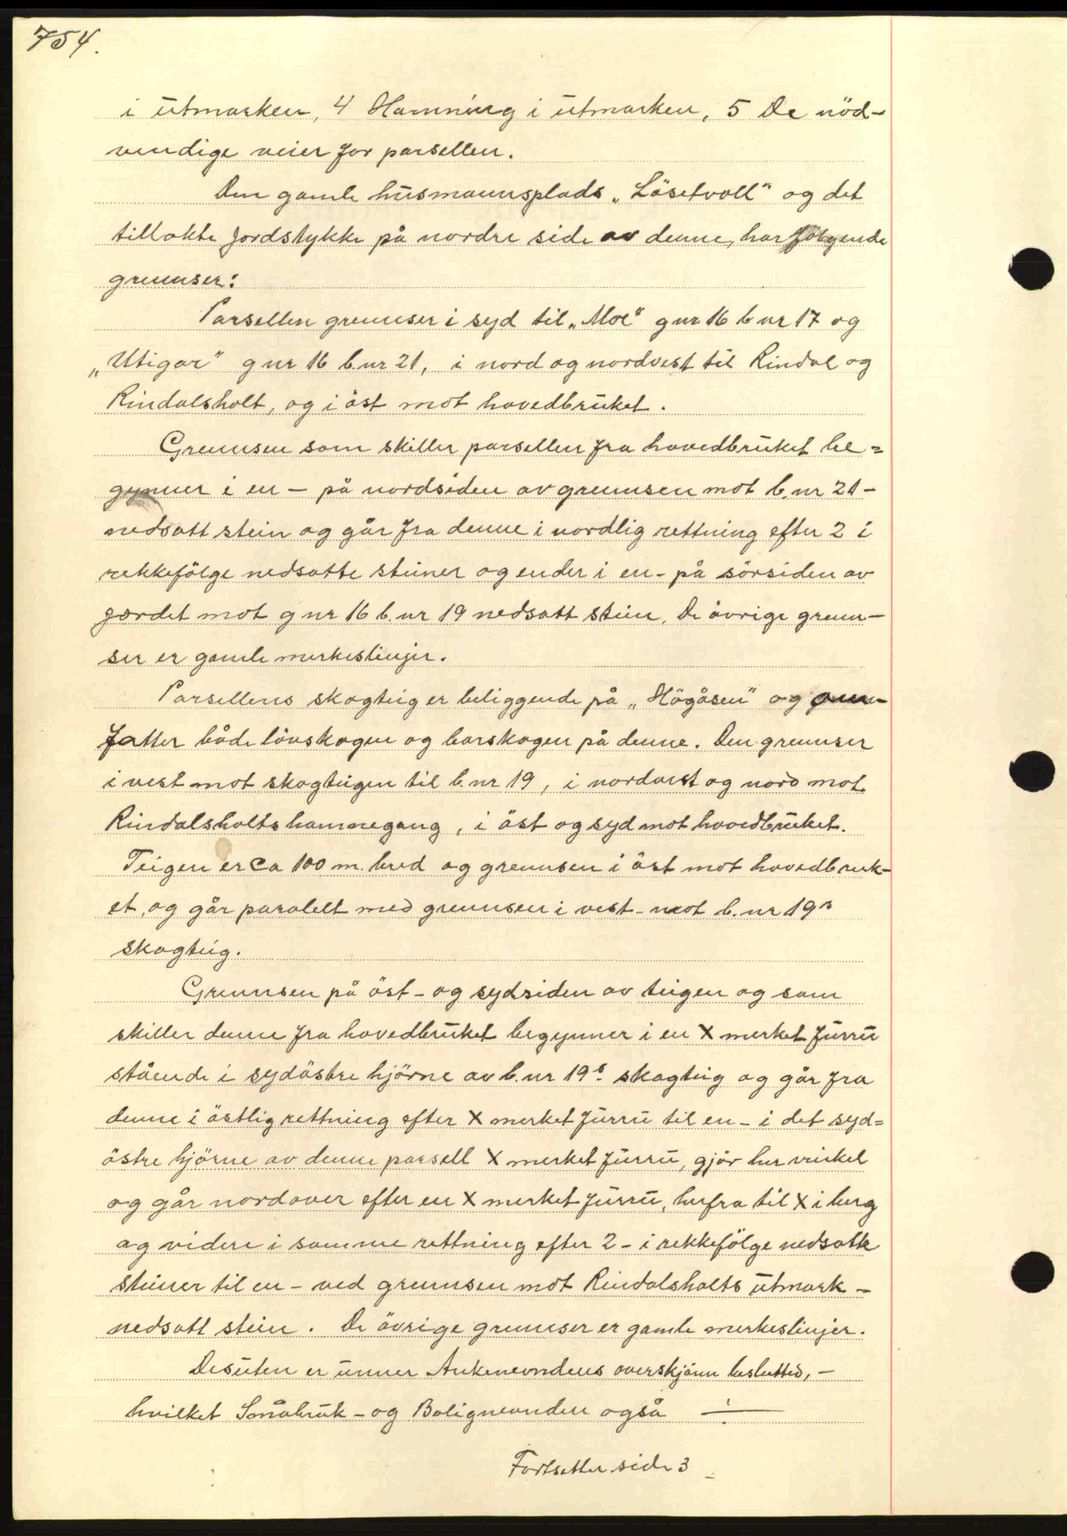 754.
i utmarken, 4 Hamning i utmarken, 5 De nöd-
vendige veier for parsellen.
Den gamle husmannsplads „Låsetvoll“ og det
tillakte jordstykke på nordre side av denne, har følgende
grenser:
Parsellen grenser i syd til „Moe“ g nr 16 b nr 17 og
„Utigar“ g nr 16 b. nr 21, i nord og nordvest til Rindal og
Rindalsholt, og i öst mot hovedbruket.
Grensen som skiller parsellen fra hovedbruket be=
gynner i en – på nordsiden av grensen mot b. nr 21 –
nedsatt stein og går fra denne i nordlig rettning efter 2 i
rekkefölge nedsatte steiner og ender i en – på sörsiden av
jordet mot g nr 16 b. nr 19 nedsatt stein. De övrige gren-
ser er gamle merkeslinjer.
Parsellens skogteig er beliggende på „Högåsen“ og om-
fatter både lövskogen og barskogen på denne. Den grenser
i vest mot skogteigen til b. nr 19, i nordvest og nord mot
Rindalsholts hamnegang, i öst og syd mot hovedbruket.
Teigen er ca 100 m. bred og grensen i öst mot hovedbruk-
et, og går paralelt med grensen i vest – mot b. nr 19s
skogteig.
Grensen på öst- og sydsiden av teigen og som
skiller denne fra hovedbruket begynner i en X merket furru
stående i sydöstre hjörne av b. nr 19s skogteig og går fra
denne i östlig rettning efter X merket furru til en – i det syd=
östre hjörne av denne parsell X merket furru, gjör her vinkel
og går nordover efter en X merket furru, herfra til X i berg
og videre i samme rettning efter 2 – i rekkefölge nedsatte
steiner til en – ved grensen mot Rindalsholts utmark –
nedsatt stein. De övrige grenser er gamle merkeslinjer.
Desuten er under Ankenevndens overskjönn besluttet, –
hvilket Småbruk- og Bolignevnden også
Fortsetter side 3